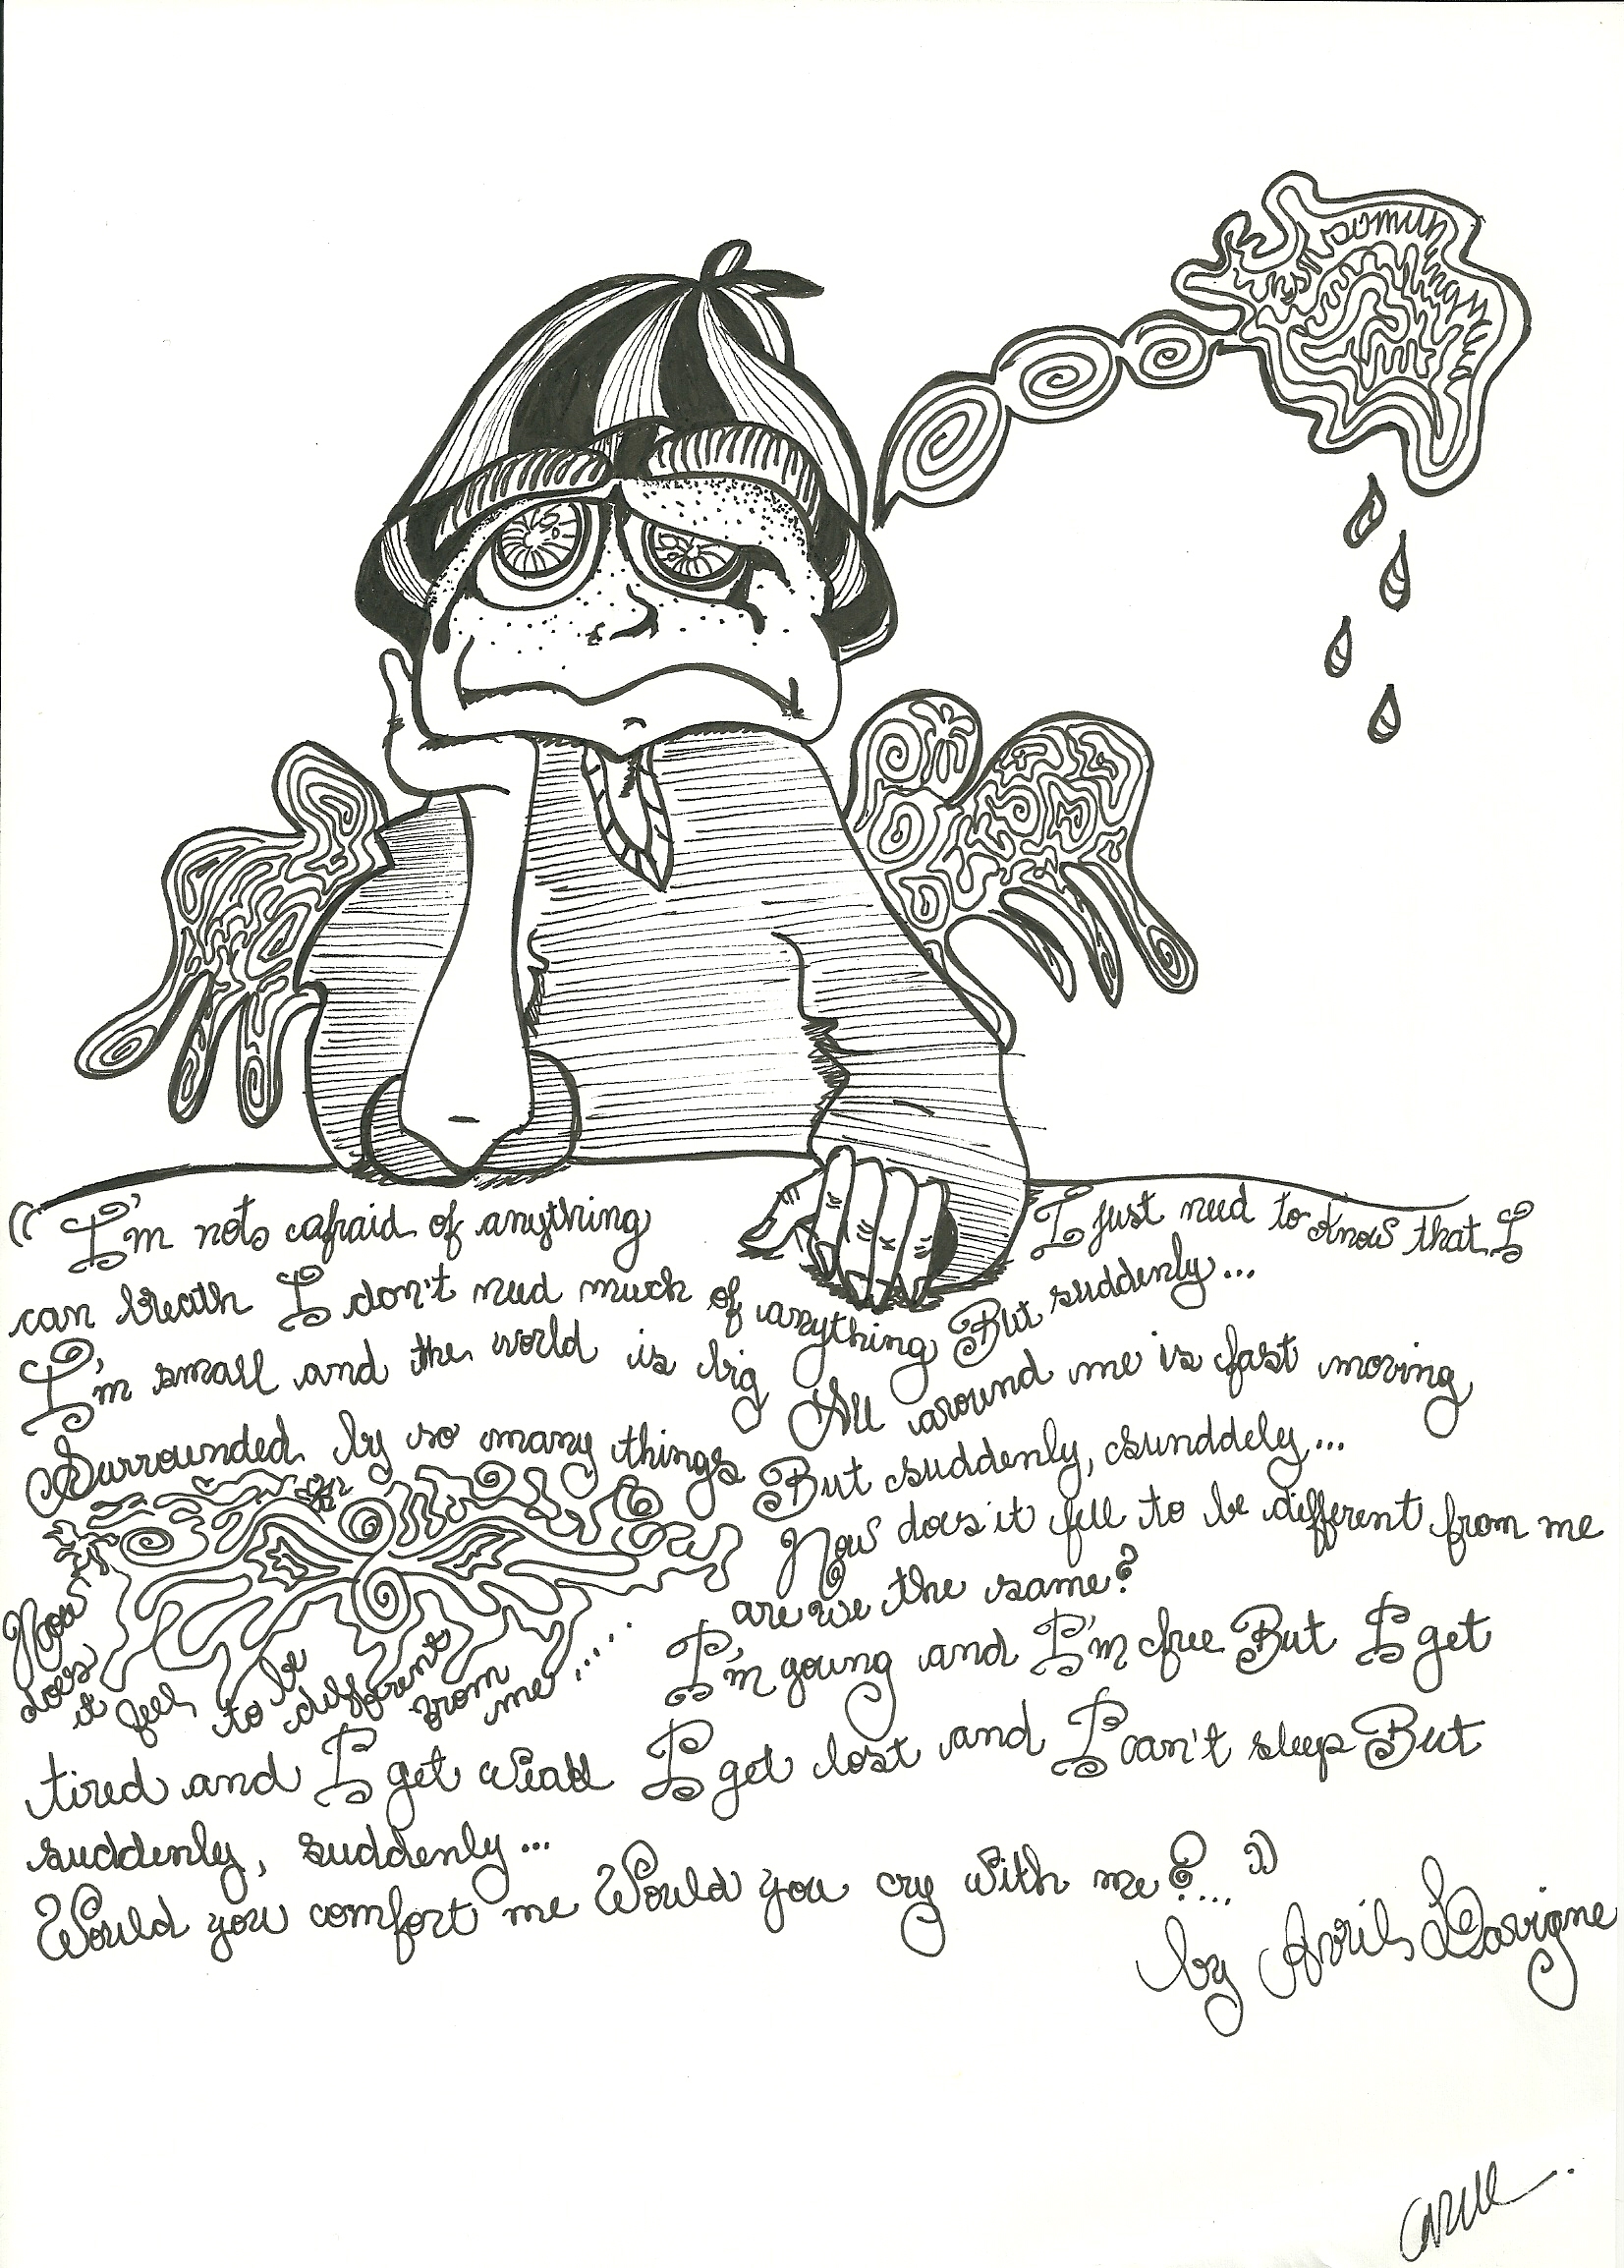 (( I'm not afraid of anything I just need to know that I
can breath I don't need much of anything But suddenly...
I'm small and the world is big All around me is fast moving
Surrounded by so many things But suddenly, sunddely...
How does it fell to be different from me
are we the same?
How does it feel to be different from me......
I'm young and I'm free But I get
tired and I get weak I get lost and I can't sleep But
suddenly, suddenly...
Would you comfort me Would you cry with me?... ))
by Avril Lavigne